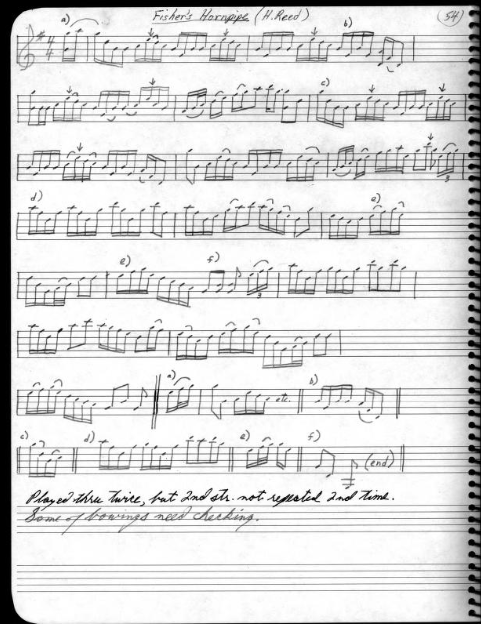 Fisher's Hornpipe (H. Reed) 54
a) b)
c)
3
d) e)
e) f) 3
a) etc. b)
c) d) e) f) (end)
Played thru twice, but 2nd str. not repeated 2nd time.
Some of bowings need checking.